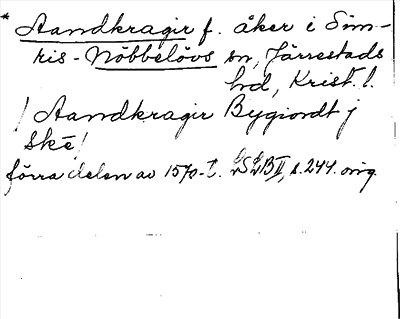 * Aandkragir f. åker i Sim-
ris-Nöbbelövs sn, Järrestads
hd, Krist. l.
/ Aandkragir Bygiordt j
Skē /
förra delen av 1570-t. LSLB II, s. 244. orig.